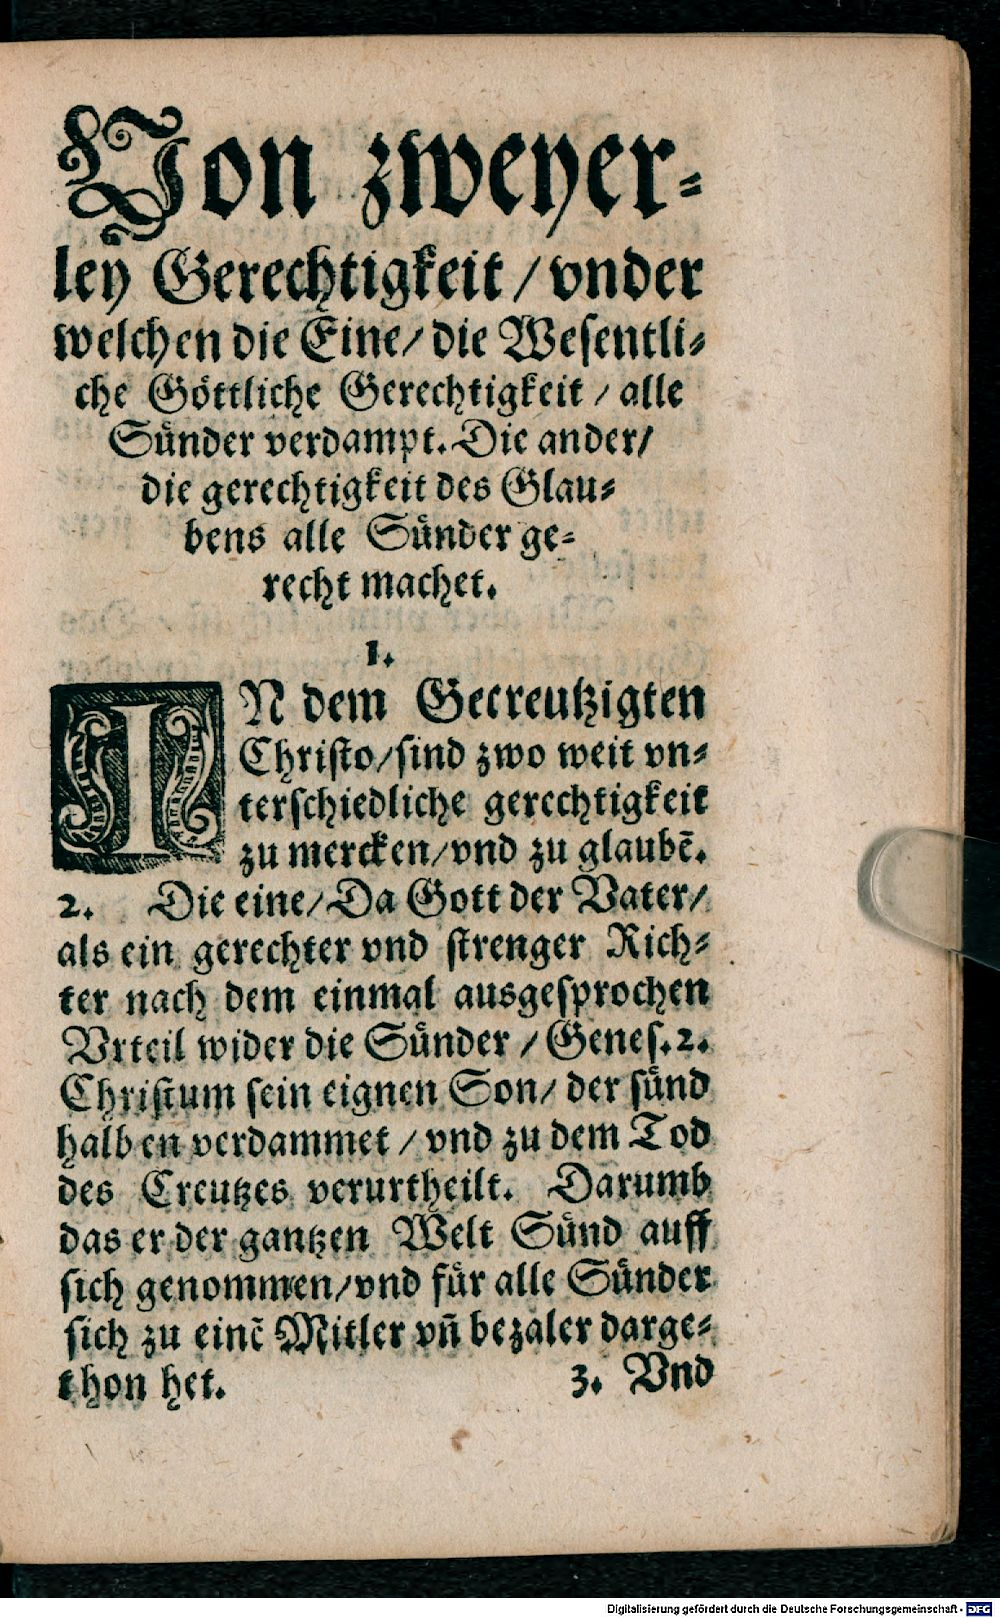 Von zweyer-
ley Gerechtigkeit / vnder
welchen die Eine / die Wesentli-
che Göttliche Gerechtigkeit / alle
Sünder verdampt. Die ander /
die gerechtigkeit des Glau-
bens alle Sünder ge-
recht machet.
1.
IN dem Gecreutzigten
Christo / sind zwo weit vn-
terschiedliche gerechtigkeit
zu mercken / vnd zu glaubē.
2. Die eine / Da Gott der Vater /
als ein gerechter vnd strenger Rich-
ter nach dem einmal ausgesprochen
Vrteil wider die Sünder / Genes. 2.
Christum sein eignen Son / der sünd
halben verdammet / vnd zu dem Tod
des Creutzes verurtheilt. Darumb
das er der gantzen Welt Sünd auff
sich genommen / vnd für alle Sünder
sich zu einē Mitler vñ bezaler darge-
thon het. 3. Vnd
Digitalisierung gefördert durch die Deutsche Forschungsgemeinschaft - DFG